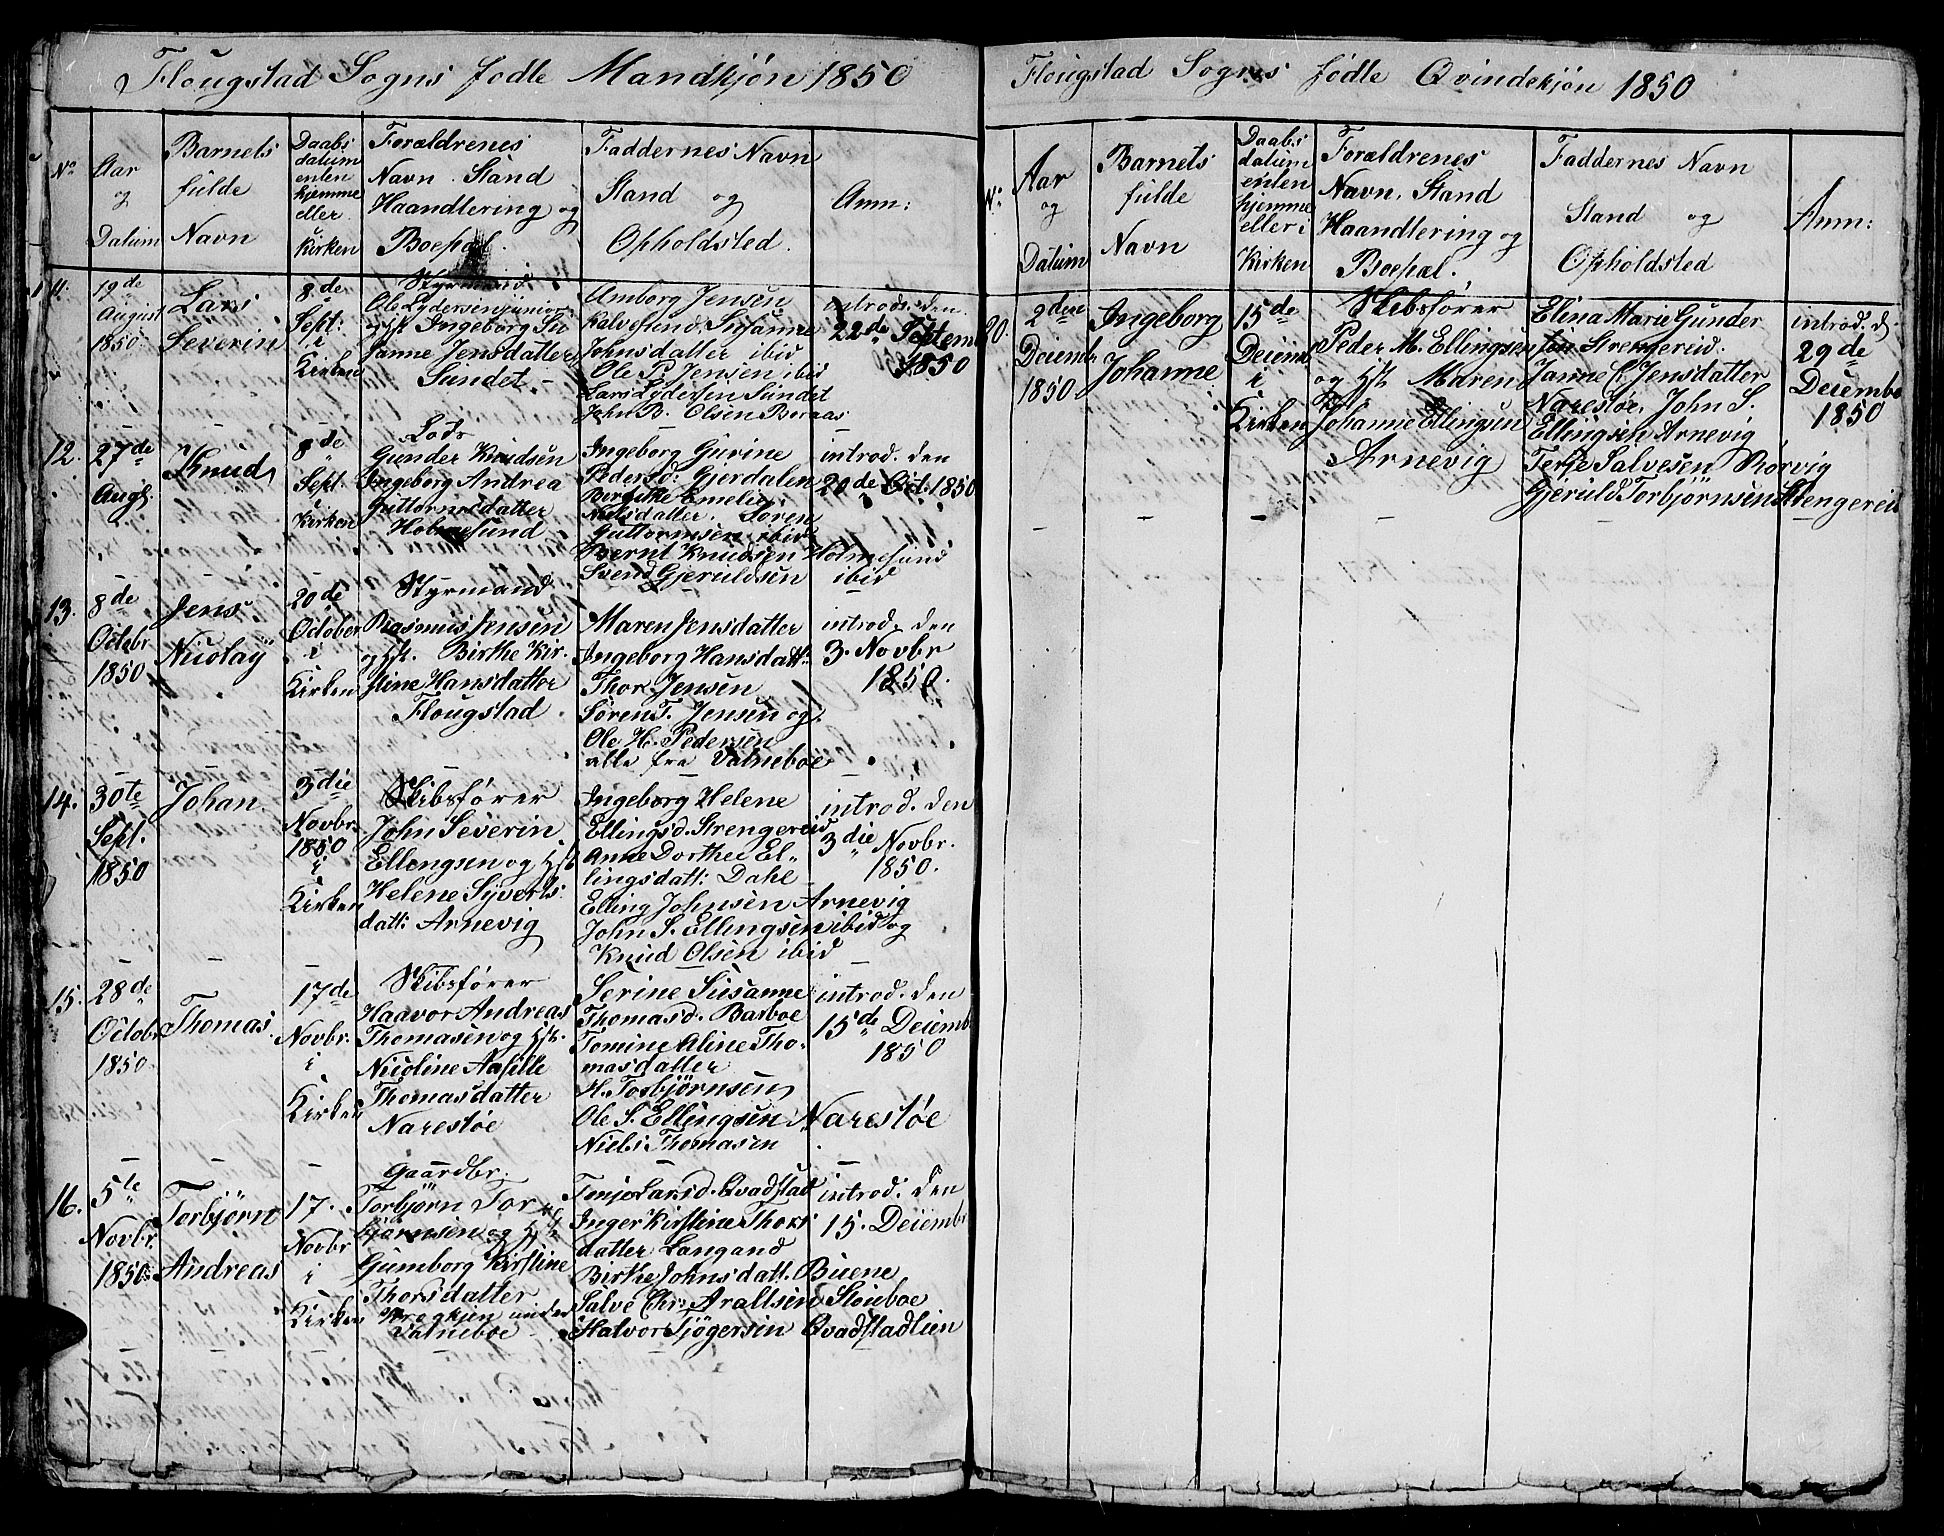 Flougstad Sogns fødte Mandkjøn 1850
No
Aar
og
Datum
Barnets
fulde
Navn
Daabs
datum
enten
hjemme
eller
Kirken
Forældrenes
Navn. Stand
Haandtering og
Boepæl.
Faddernes Navn
Stand og
Opholdsted.
Anm:
11.
19de
August
1850
Lars
Severin
8de
Sept:
i
Kirken
Styrmand
Ole Lydersen junior
og Hst Ingeborg Su
sanne Jensdatter
Sundet.
Amborg Jensen
Kalvesund. Susanne
Johnsdatter ibid
Ole P. Jensen ibid
Lars Lydersen Sundet
John B. Olsen Boraas
introd: den
22de Septem
1850
12.
27de
Augt
Knud
8de
Sept
Kirken
Lods
Gunder Knudsen
Ingeborg Andrea
Guttormsdatter
Holmesund
Ingeborg Gurine
Pedersd: Gjerdalen
Emelie
Nielsdatter. Søren
Guttormsen ibid
Bernt Knudsen Holmesund
Svend Gjeruldsen ibid
introd. den
20de Oct. 1850
13.
8de
Octobr
1850
Jens
Nicolaÿ
20de
October
i
Kirken
Styrmand
Rasmus Jensen
og Hst. Birthe Kir.
stine Hansdatter
Flougstad
Maren Jensdatter
Ingeborg Hansdatt:
Thor Jensen
Søren T. Jensen og
Ole H. Pedersen
alle fra Valneboe
introd. den
3. Novbr
1850.
14.
30te
Sept.
1850
Johan.
3die
Novbr.
1850
i
Kirken
Skibsfører
John Severin
Ellengsen og Hst
Helene Syverts:
datt: Arnevig
Ingeborg Helene
Ellingsd. Strengereid
Anne Dorthee El-
lingsdatt: Dahl
Elling Johnsen Arnevig
John S. Ellingsen ibid og
Knud Olsen ibid
introd. den
3die Novbr.
1850.
15.
28de
Octobr
1850
Thomas.
17de
Novbr.
i
Kirken
Skibsfører
Haavor Andreas
Thomasen og Hst.
Nicoline Aasille
Thomasdatter
Narestøe
Serine Susanne
Thomasd. Barboe
Tomine Aline Tho-
masdatter
H. Torbjørnsen
Ole S. Ellingsen Narestøe
Niels Thomasen
introd. den
15de Deiemb
1850
16.
5te
Novbr.
1850
Torbjørn
Andreas
17.
Novbr
i
Kirken
Gaardbr.
Torbjørn Tor
bjørnsen og Hst
Gumborg Kirstine
Thorsdatter
under
Valneboe
Tonje Larsd. Qvadstad
Inger Kirstine Thors
datter Langand
Birthe Johnsdatt. Buene
Salve Chr: Araltsen Støleboe
Halvor Tjøgersen Qvadstadlien
introd. den
15. Deiembr
Flougstad Sogns fødte Qvindekjøn 1850
No:
Aar
og
Datum
Barnets
fulde
Navn
Daabs
datum
enten
hjemme
eller i
Kirken
Forældrenes
Navn. Stand
Haandtering og
Boepæl.
Faddernes Navn
Stand og
Opholdsted
Anm:
20.
2den
Deiembr
1850.
Ingeborg
Johanne
15de
Deiemb
i
Kirken
Skibsfører
Peder M. Ellingsen
og Hst Maren
Johanne Ellingsen
Arnevig
Elena Marie Gunder
sen Strengereid.
Janne C. Jensdatter
Narestøe, John S.
Ellingsen Arnevig
Terje Salvesen Rørvig
Gjeruld Torbjørnsen Strengereid
introd. d.
29de
Deiembe
1850